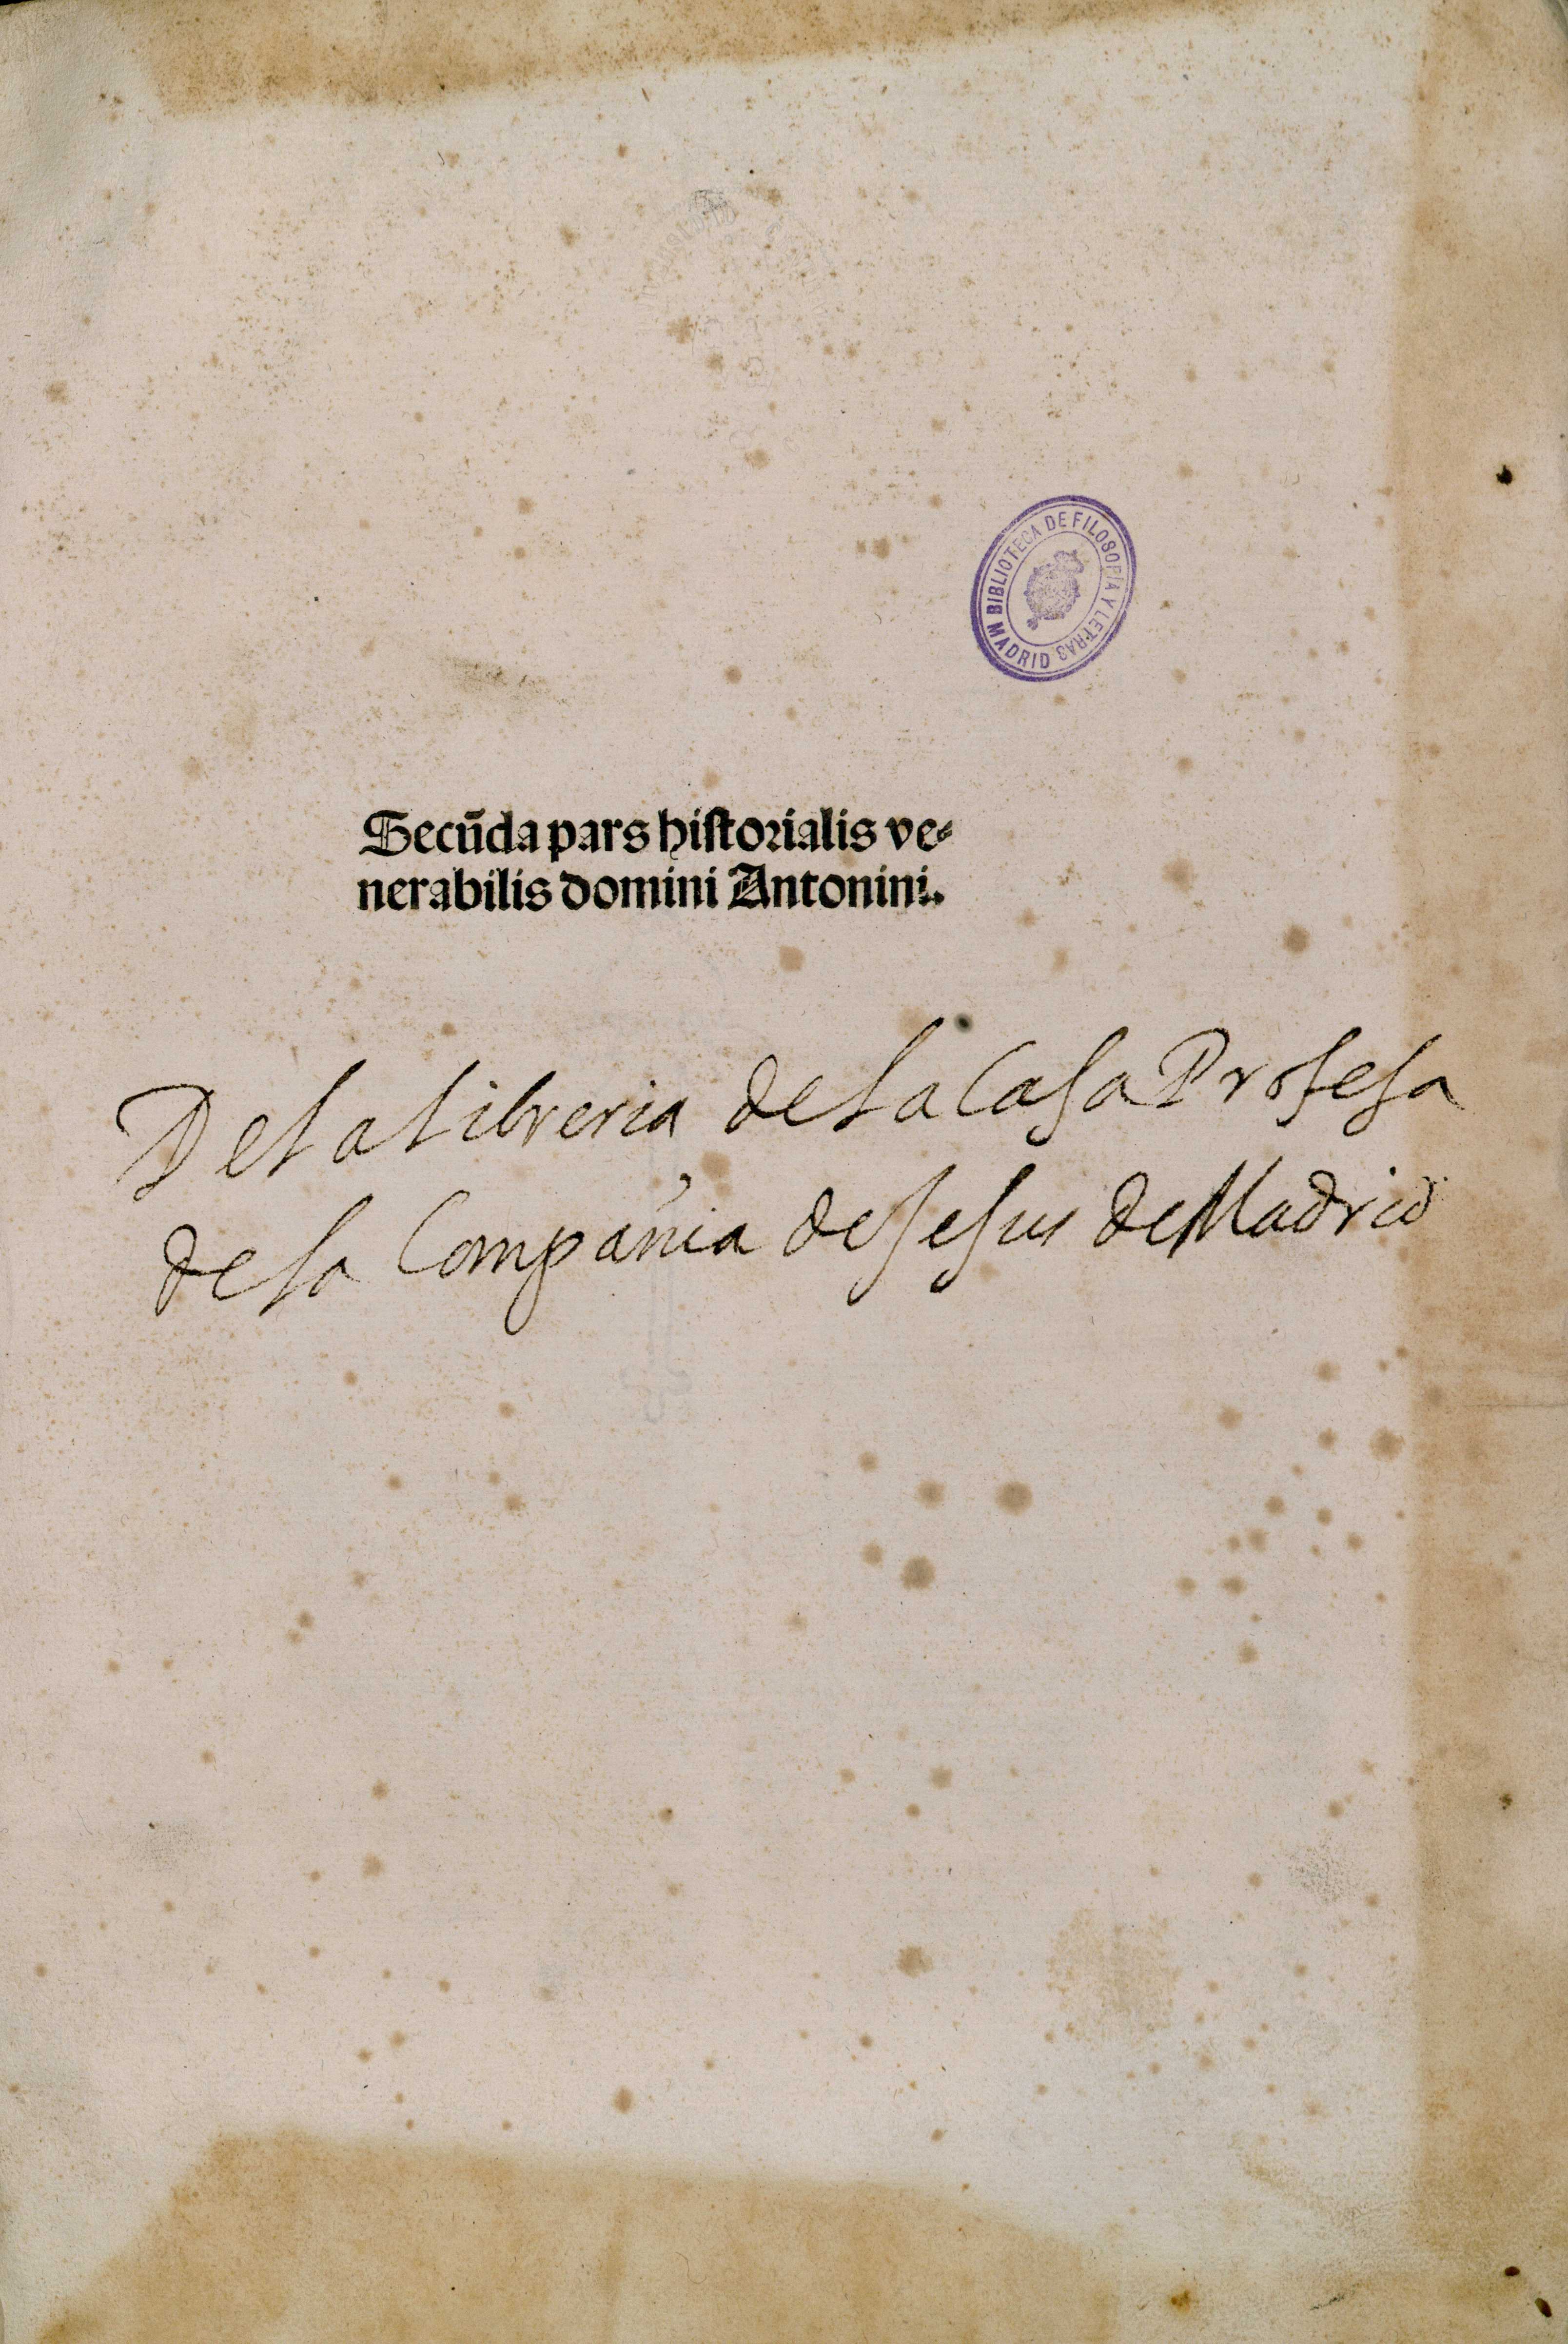 BIBLIOTECA DE FILOSOFIA Y LETRAS
MADRID
Secūda pars hiſtorialis ve⸗
nerabilis domini Antonini.
De la libreria de la Casa Profesa
de la Compañia de Jesus de Madrid